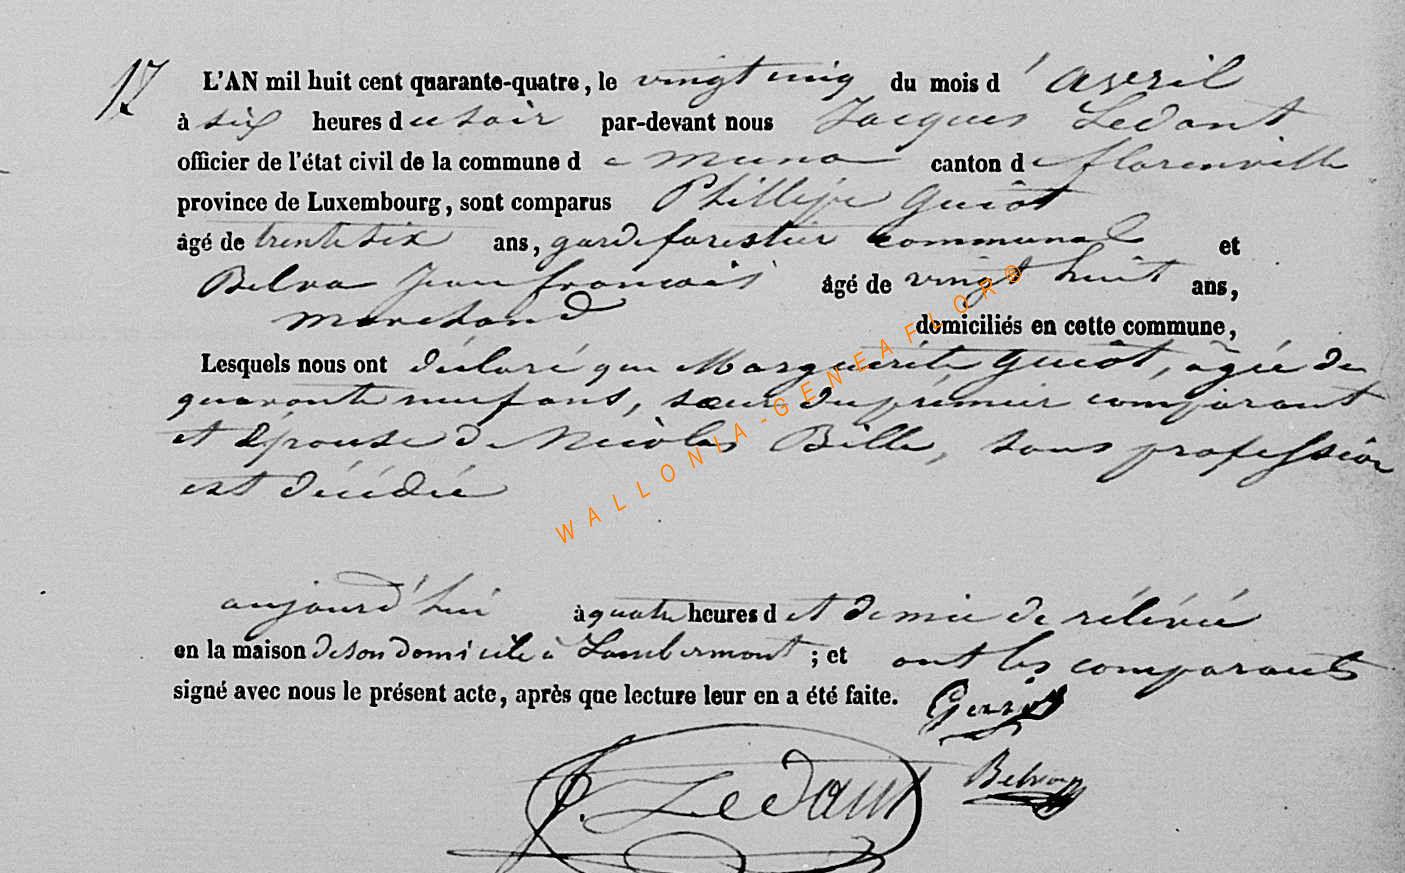 17 L'AN mil huit cent quarante-quatre, le vingt cinq du mois d'avril
à six heures du soir par-devant nous Jacques Ledant
officier de l'état civil de la commune de muno canton de florenville
province de Luxembourg, sont comparus Phillipe Guiot
âgé de trente six ans, garde forestier communal et
Belva jean francois âgé de vingt huit ans,
marchand domiciliés en cette commune,
Lesquels nous ont déclaré que Marguerite Guiot, âgée de
quarante neuf ans, sœur du prémier comparant
et épouse de Nicolas Bille, sans profession
est décédée
aujourd'hui à quatre heures d et demie de rélévée
en la maison de son domicile à Lambermont ; et ont les comparants
signé avec nous le présent acte, après que lecture leur en a été faite. Guiot
Belva
J. Ledant
WALLONIA-GENEAFLOR®